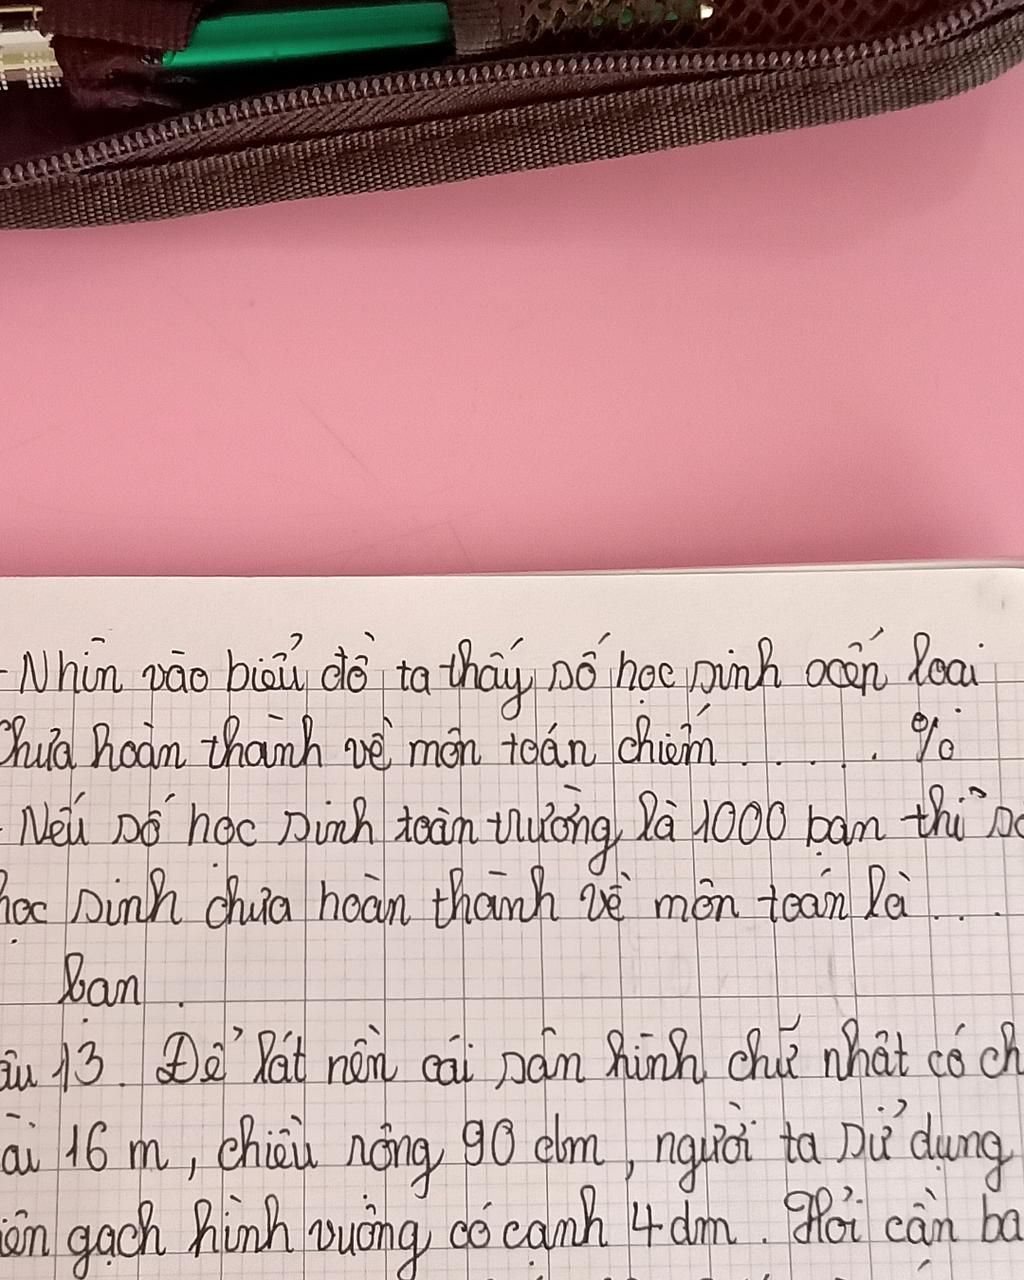 - Nhìn vào biểu đồ ta thấy số học sinh xếp loại
chưa hoàn thành về môn toán chiếm ...... %
- Nếu số học sinh toàn trường là 1000 bạn thì
học sinh chưa hoàn thành về môn toán là ...
bạn.
13. Để lát nền cái sân hình chữ nhật có
16 m, chiều rộng 90 dm, người ta sử dụng
gạch hình vuông có cạnh 4 dm. Hỏi cần